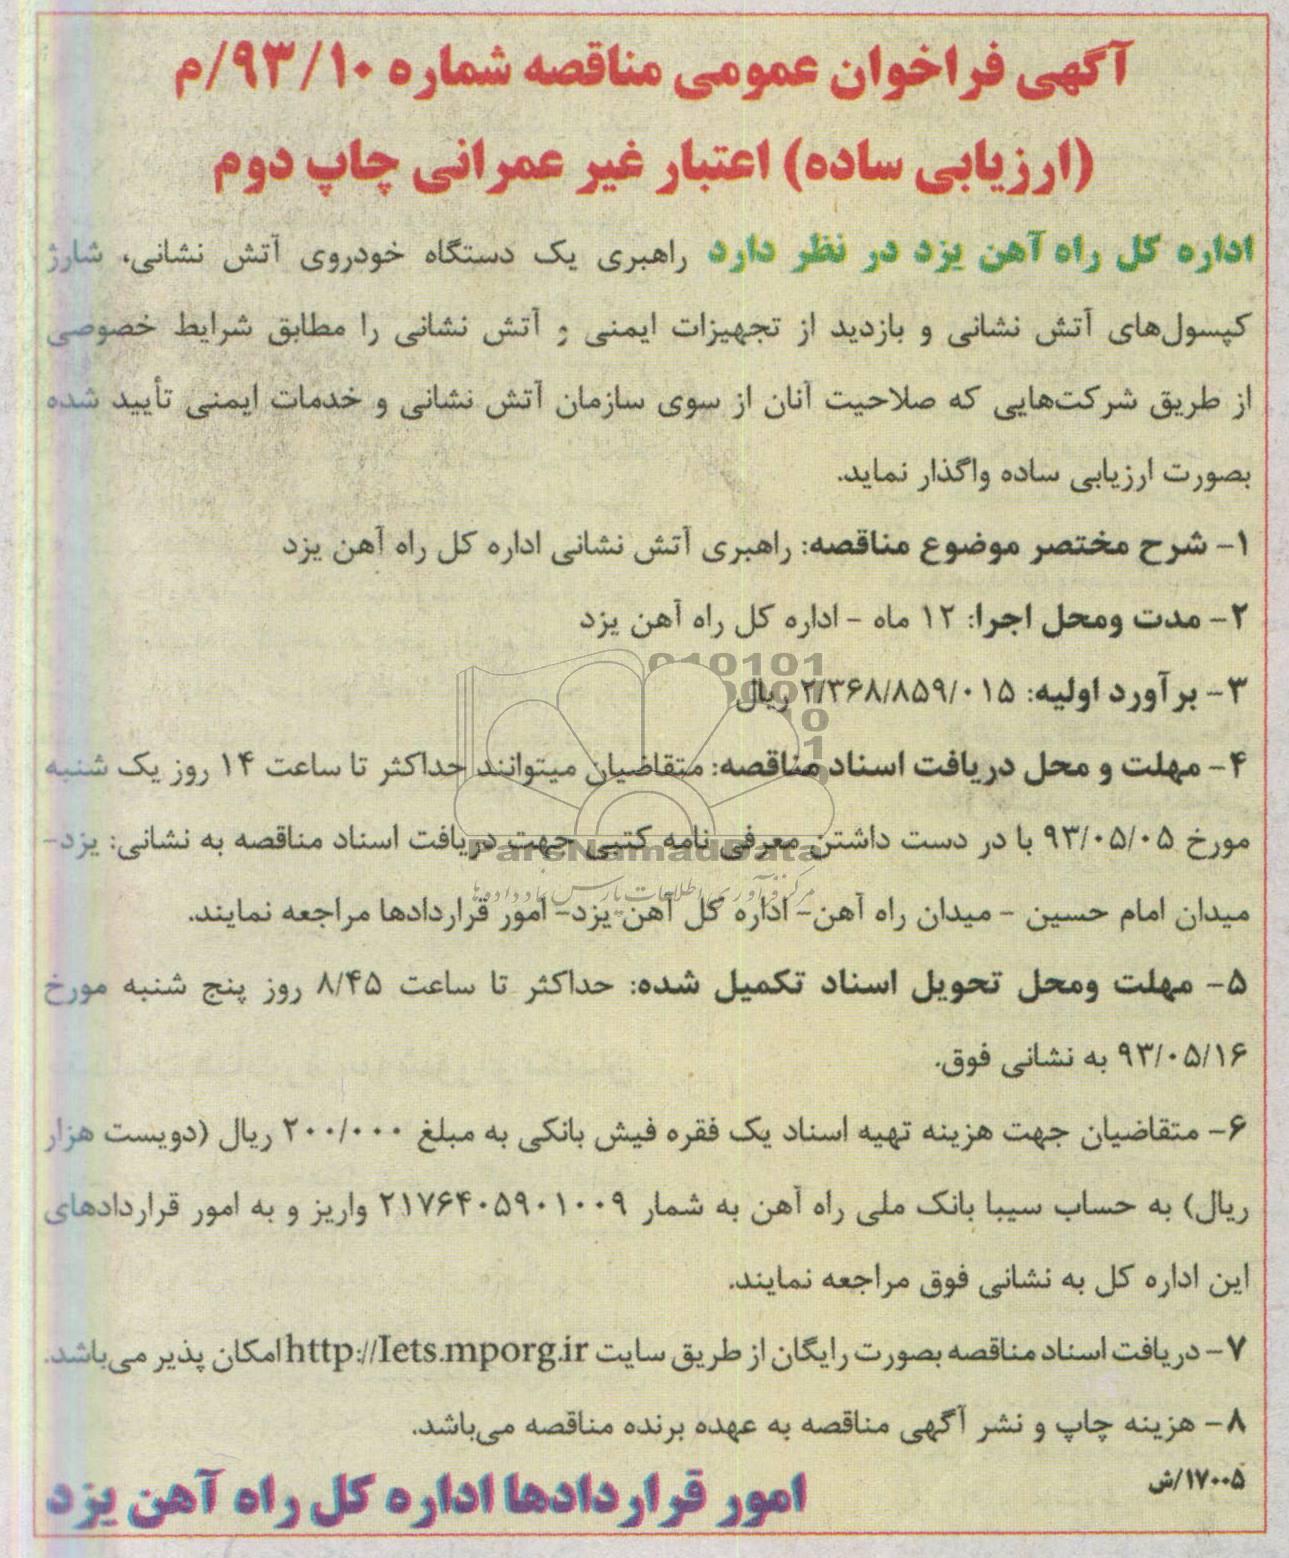 آگهی فراخوان عمومی مناقصه شماره ۹۳/۱۰/م
(ارزیابی ساده) اعتبار غیر عمرانی چاپ دوم
اداره کل راه آهن یزد در نظر دارد راهبری یک دستگاه خودروی آتش نشانی، شارژ
کپسول‌های آتش نشانی و بازدید از تجهیزات ایمنی و آتش نشانی را مطابق شرایط خصوصی
از طریق شرکت‌هایی که صلاحیت آنان از سوی سازمان آتش نشانی و خدمات ایمنی تأیید شده
بصورت ارزیابی ساده واگذار نماید.
۱- شرح مختصر موضوع مناقصه: راهبری آتش نشانی اداره کل راه آهن یزد
۲- مدت ومحل اجرا: ۱۲ ماه - اداره کل راه آهن یزد
۳- برآورد اولیه: ۲/۳۶۸/۸۵۹/۰۱۵ ریال
۴- مهلت و محل دریافت اسناد مناقصه: متقاضیان میتوانند حداکثر تا ساعت ۱۴ روز یک شنبه
مورخ ۹۳/۰۵/۰۵ با در دست داشتن معرفی نامه کتبی جهت دریافت اسناد مناقصه به نشانی: یزد-
میدان امام حسین - میدان راه آهن- اداره کل آهن یزد- امور قراردادها مراجعه نمایند.
۵- مهلت ومحل تحویل اسناد تکمیل شده: حداکثر تا ساعت ۸/۴۵ روز پنج شنبه مورخ
۹۳/۰۵/۱۶ به نشانی فوق.
۶- متقاضیان جهت هزینه تهیه اسناد یک فقره فیش بانکی به مبلغ ۲۰۰/۰۰۰ ریال (دویست هزار
ریال) به حساب سیبا بانک ملی راه آهن به شمار ۲۱۷۶۴۰۵۹۰۱۰۰۹ واریز و به امور قراردادهای
این اداره کل به نشانی فوق مراجعه نمایند.
۷- دریافت اسناد مناقصه بصورت رایگان از طریق سایت http://Iets.mporg.ir امکان پذیر می‌باشد.
۸- هزینه چاپ و نشر آگهی مناقصه به عهده برنده مناقصه می‌باشد.
۱۷۰۰۵/ش
امور قراردادها اداره کل راه آهن یزد
ParsNamadData